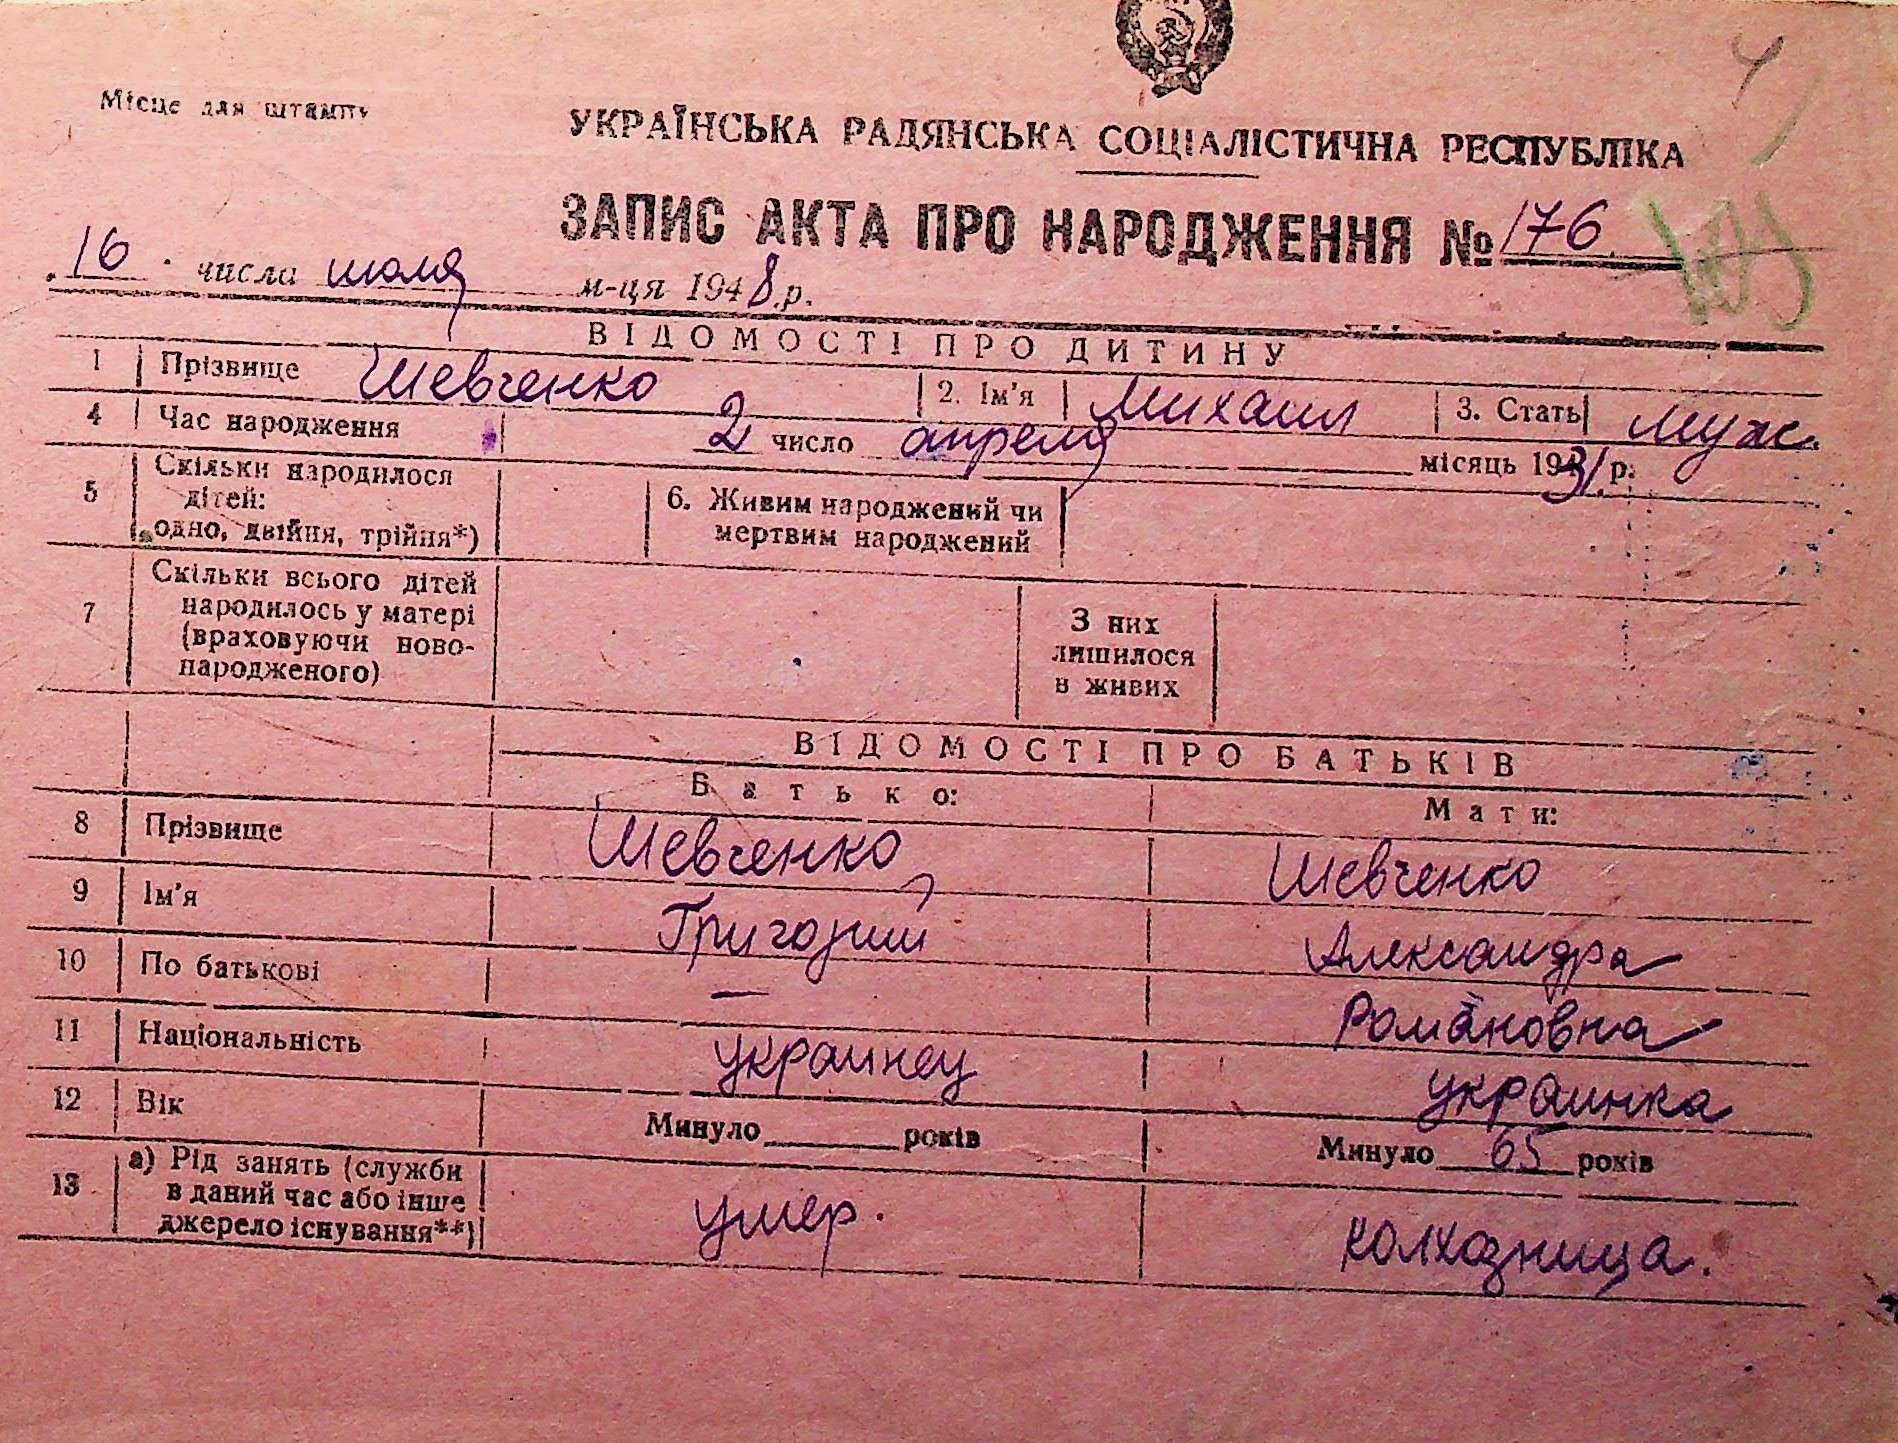 Місце для штампу
УКРАЇНСЬКА РАДЯНСЬКА СОЦІАЛІСТИЧНА РЕСПУБЛІКА
ЗАПИС АКТА ПРО НАРОДЖЕННЯ № 176
16 числа июля м-ця 1948 р.
ВІДОМОСТІ ПРО ДИТИНУ
1 Прізвище Шевченко 2. Ім'я Михаил 3. Стать муж.
4 Час народження 2 число апреля місяць 1931 р.
5 Скільки народилося
дітей:
одно, двійня, трійня*)
6. Живим народжений чи
мертвим народжений
7 Скільки всього дітей
народилось у матері
(враховуючи ново-
народженого)
З них
лишилося
в живих
ВІДОМОСТІ ПРО БАТЬКІВ
Батько: Мати:
8 Прізвище Шевченко Шевченко
9 Ім'я Григорий Александра
10 По батькові — Романовна
11 Національність украинец украинка
12 Вік Минуло років Минуло 65 років
13 а) Рід занять (служби
в даний час або інше
джерело існування**)
умер. колхозница.